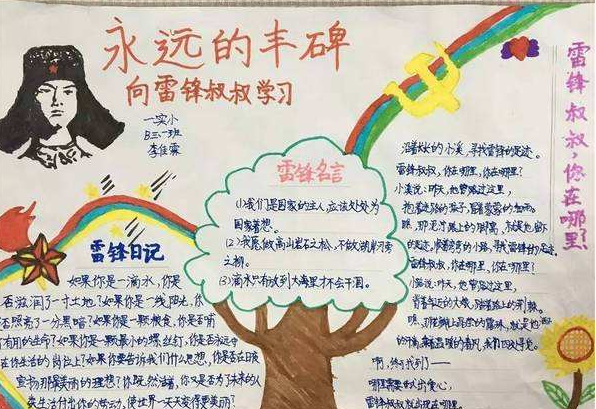 永远的丰碑
向雷锋叔叔学习
一实小
雷锋日记
如果你是一滴水，你是
否滋润了一寸土地？如果你是一线阳光，你
否照亮了一分黑暗？如果你是一颗粮食，你是否哺
有用的生命？如果你是一颗最小的螺丝钉，你是否永远守
在你生活的岗位上？如果你要告诉我们什么思想，你是否在日夜
宣扬那最美丽的理想？你既然活着，你又是否为了未来的人
类生活付出你的劳动，使世界一天天变得更美丽？
雷锋名言
(1)我们是国家的主人，应该处处为
国家着想。
(2)我愿做高山岩石之松，不做湖岸河旁
之柳。
(3)滴水只有放到大海里才不会干涸。
雷锋叔叔，您在哪里
沿着长长的小溪，寻找雷锋的足迹。
雷锋叔叔，你在哪里，你在哪里？
小溪说：昨天，他曾路过这里，
抱着迷路的孩子，冒着蒙蒙的细雨。
瞧，那泥泞路上的脚窝，就是他留下
的足迹。顺着弯弯的小路，寻找雷锋的足迹。
雷锋叔叔，你在哪里，你在哪里？
小路说：昨天，他曾路过这里，
背着年迈的大娘，踏着路上的荆棘。
瞧，那花瓣上晶莹的露珠，就是他洒
啊，终于找到了——
哪里需要献出爱心，
雷锋叔叔就出现在哪里。